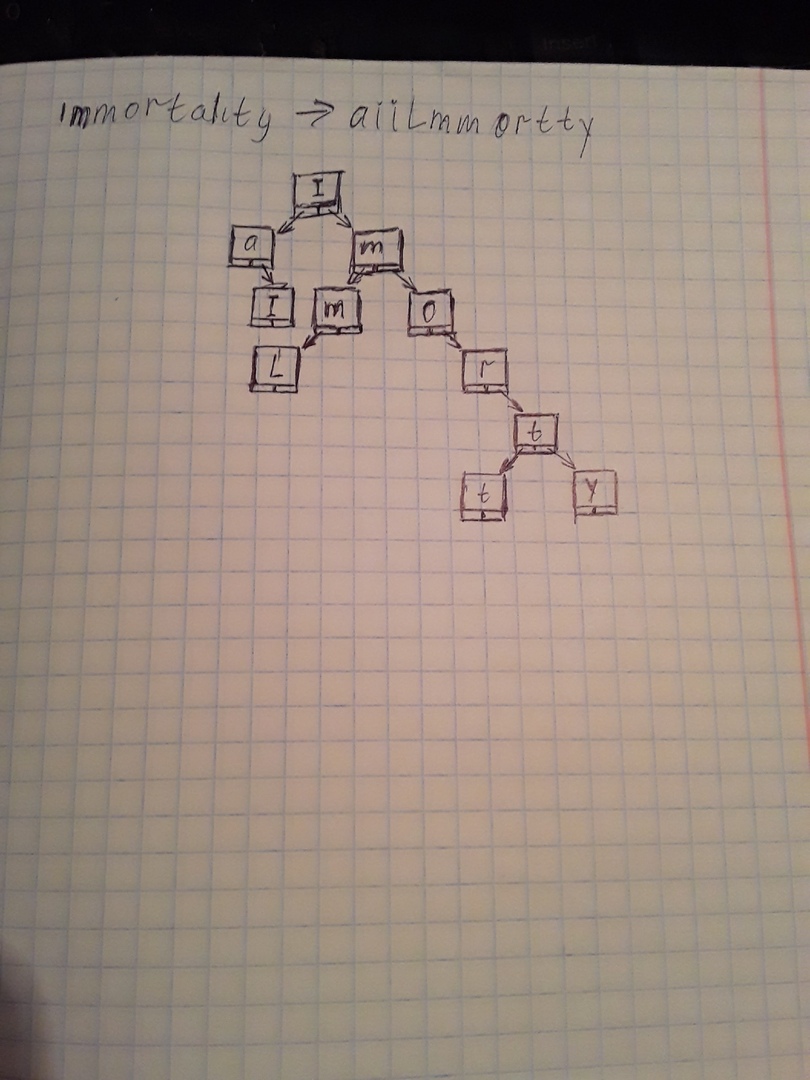 immortality → aiiLmmortty
I
a m
I m O
L r
t
t y